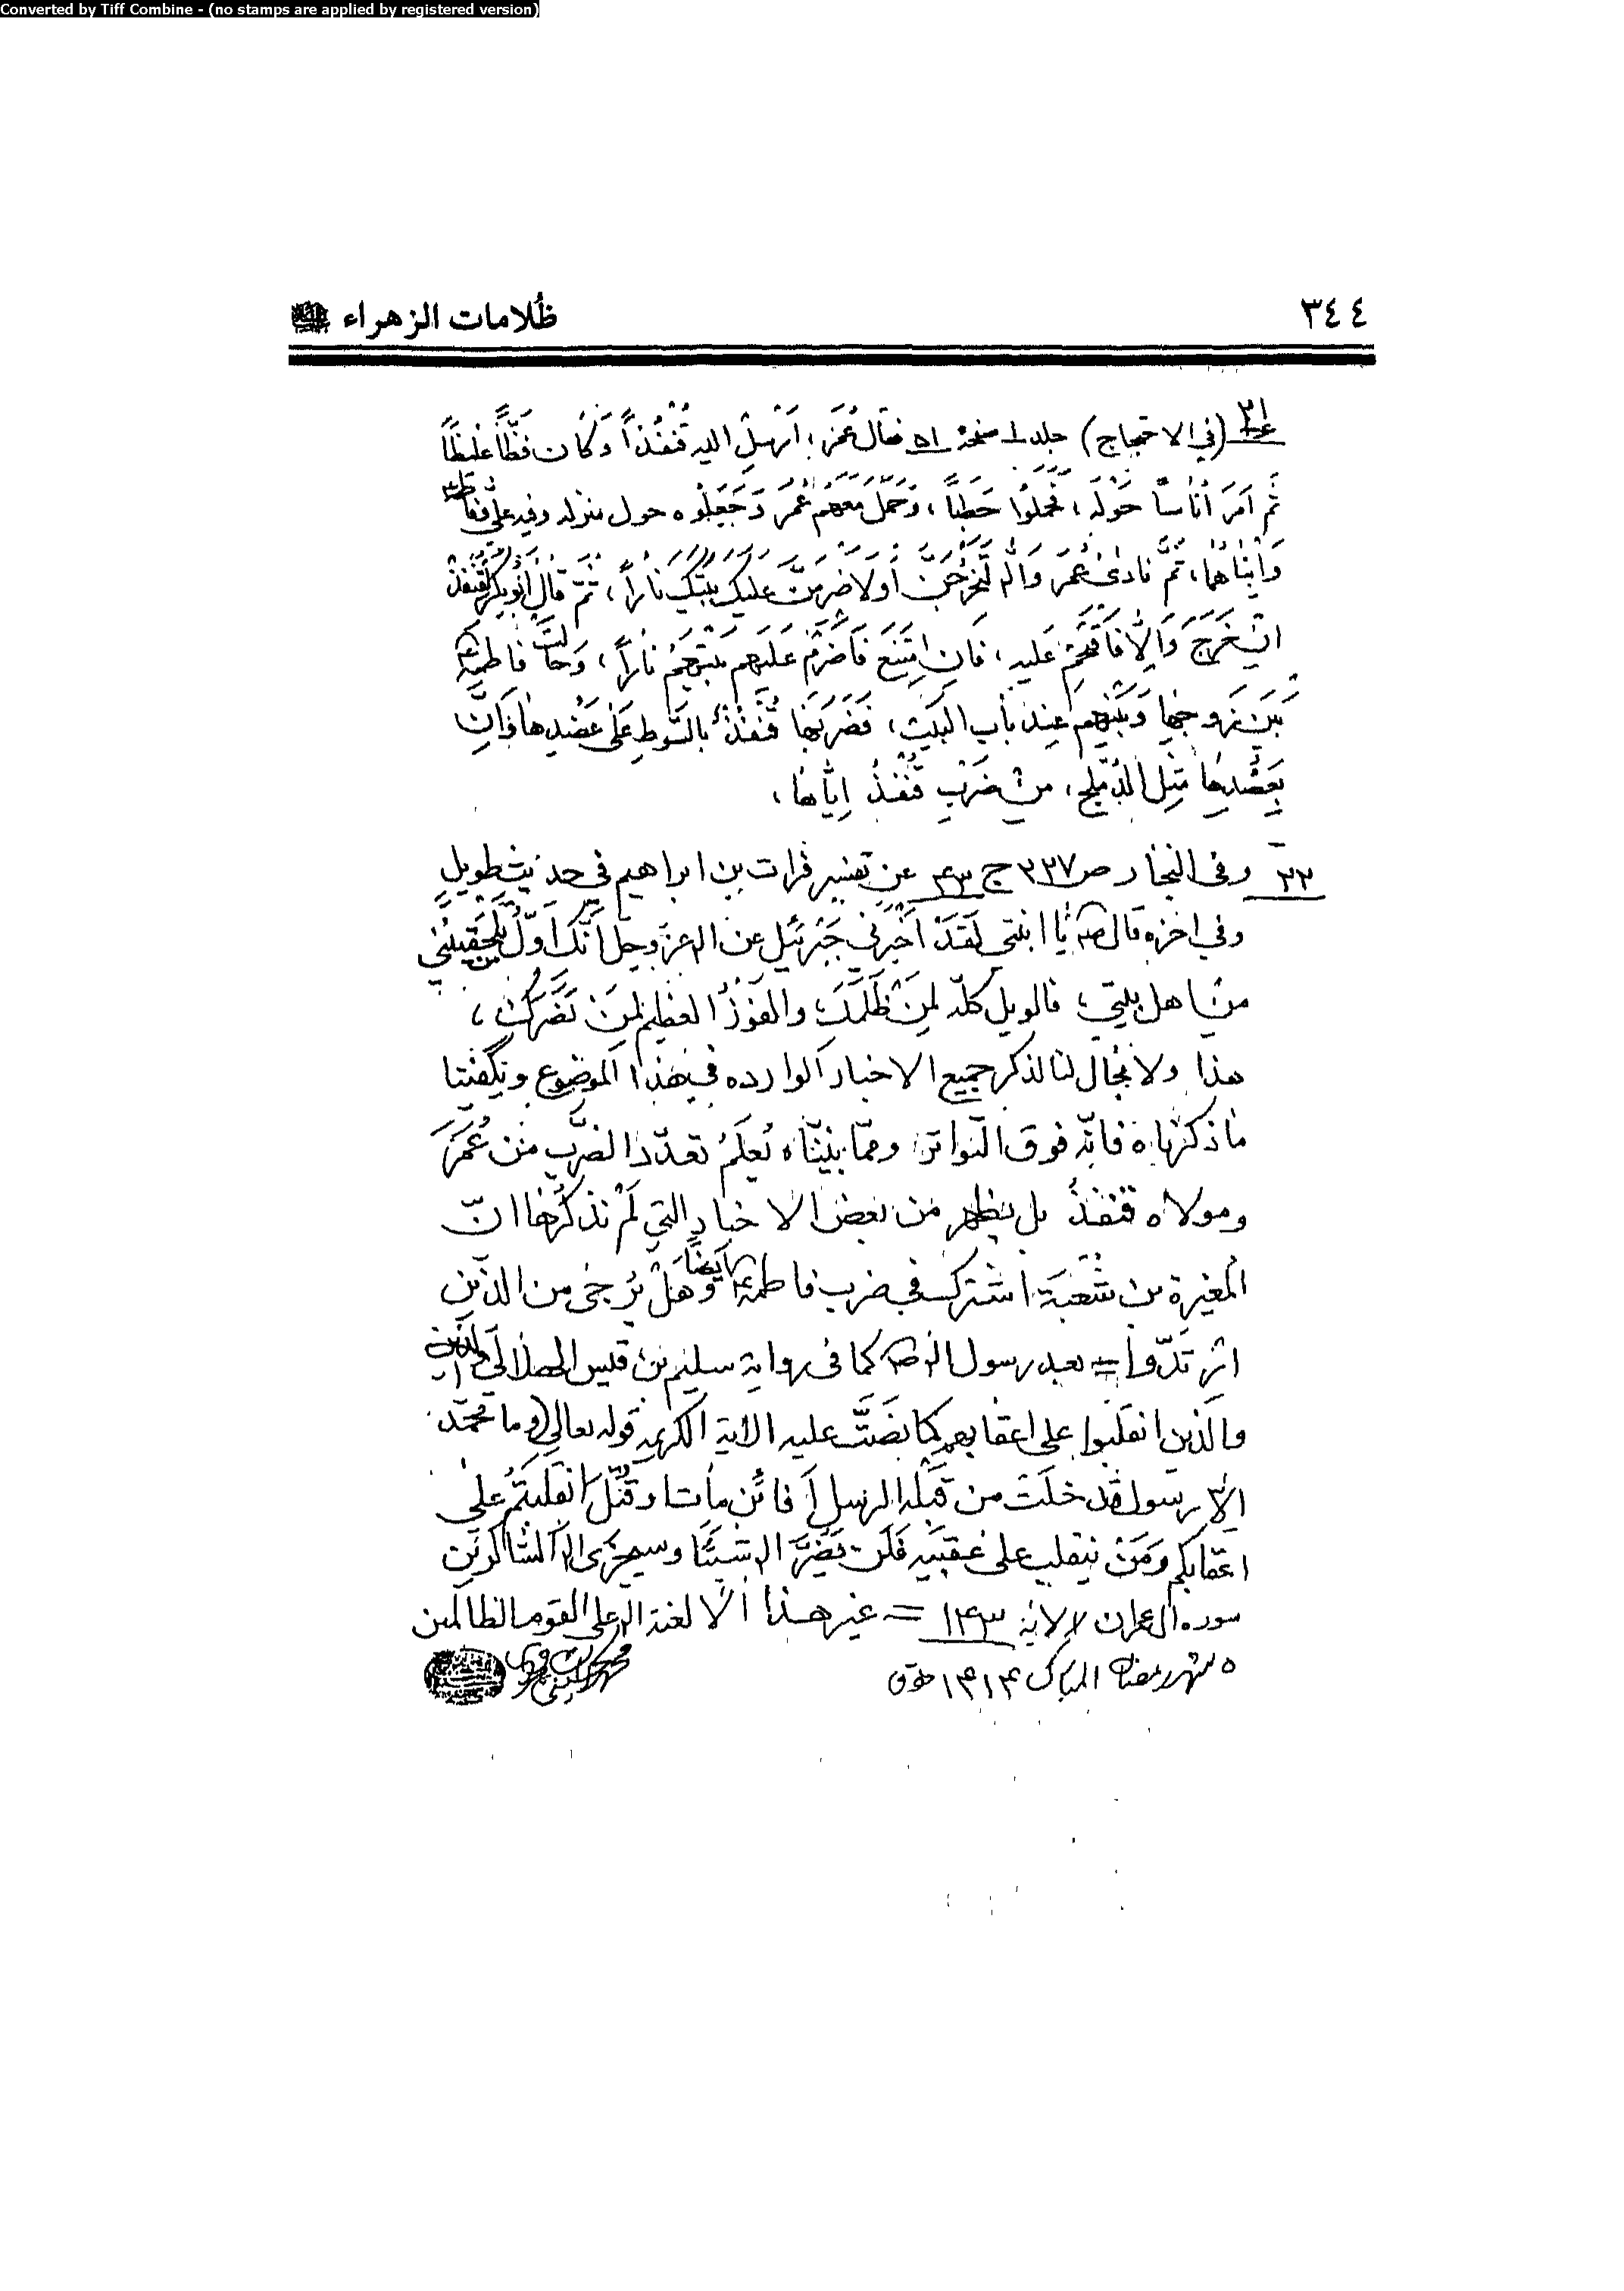 Converted by Tiff Combine - (no stamps are applied by registered version)
٣٤٤
ظُلامات الزهراء
(في الاحتجاج) جلد ١ صفحة ٥١ فقال عُمَر: اَرسِل اليه قُنفُذاً وَكان فظّاً غليظاً
ثم اَمَرَ اُناساً حَوْلَه، فحملوا حَطباً، وَحَمَلَ مَعَهُم عُمَر وَجَعَلُوه حول منزله وفيه علي
وَابْناهُما، ثُمَّ نادىٰ عُمَر وَالله لَتَخرُجَنَّ اَولاضرِمَنَّ عَلَيكَ بَيتَكَ ناراً، ثُمّ قال ابُوبكر لقُنفُذ
ان خَرَجَ وَاِلّا فَاقتَحِم عَليه، فَانِ امتَنَعَ فَاضرِم عَلَيهِم بَيتَهُم ناراً، وَحالت فاطمة
بَينَ زَوجها وَبَينَهم عِند باب البَيت، فَضَرَبَها قُنفُذُ بالسَّوطِ عَلىٰ عَضُدِها وَاَنَّ
بِعَضُدِها مثل الدُّملج، من ضَربِ قُنفُذ اِيّاها،
٣٢ وفى البحار ص ٣٣٧ ج عن تفسير فرات بن ابراهيم في حديث طويل
وفي اخره قال ص يا ابنتي لَقَدْ اَخبَرني جَبْرَئيل عن الله عزّ وجل اَنَّكِ اَوّلُ من يَلحَقُني
من اهل بيتي، فالويل كلّه لِمَن ظَلَمَكِ والفَوزُ العظيم لِمَن نَصَرَكِ،
هذا ولا مجال لنا لذكر جميع الاخبار الوارده في هذا الموضوع ويكفينا
ما ذكرناه فانّه فوق التواتر، وممّا بيّنّاه يُعلَمُ تعدّد الضرب من عُمَرَ
ومولاه قنفذُ بل يظهر من بعض الاخبار التي لَمْ نذكُرها انّ
المغيرة بن شُعْبَة اشترك في ضرب فاطمة ع ايضاً وَهَلْ يُرجىٰ من الذين
ارتَدّوا = بعد رسول الله ص كما فى رواية سليم بن قيس الهلالي
والّذين انقلبوا على اعقابهم كما نصَّت عليه الاية الكريمه قوله تعالى (وما محمّد
الا رسول قد خلت من قبله الرسل اَفائن مات او قُتل انقلبتُم على
اعقابكم وَمَنْ ينقلب على عَقبَيه فَلَن يَضُرَّ الله شيئاً وسيجزى الله الشاكرين
سوره آل عمران الاية ١٤٣ = غير هذا الا لعنة الله على القوم الظالمين
٥ شهر رمضان المبارك ١٤١٤ هـ ق